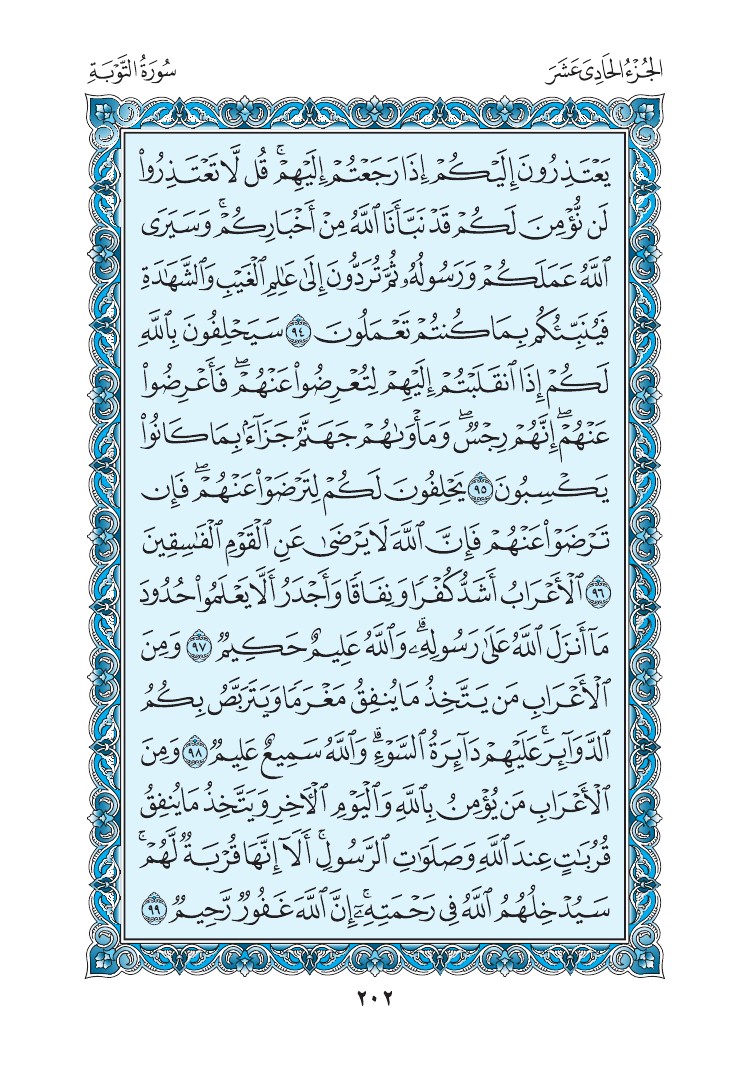 الجُزْءُ الحَادِي عَشَرَ
سُورَةُ التَّوْبَةِ
يَعْتَذِرُونَ إِلَيْكُمْ إِذَا رَجَعْتُمْ إِلَيْهِمْ ۚ قُل لَّا تَعْتَذِرُوا۟
لَن نُّؤْمِنَ لَكُمْ قَدْ نَبَّأَنَا ٱللَّهُ مِنْ أَخْبَارِكُمْ ۚ وَسَيَرَى
ٱللَّهُ عَمَلَكُمْ وَرَسُولُهُۥ ثُمَّ تُرَدُّونَ إِلَىٰ عَـٰلِمِ ٱلْغَيْبِ وَٱلشَّهَـٰدَةِ
فَيُنَبِّئُكُم بِمَا كُنتُمْ تَعْمَلُونَ ٩٤ سَيَحْلِفُونَ بِٱللَّهِ
لَكُمْ إِذَا ٱنقَلَبْتُمْ إِلَيْهِمْ لِتُعْرِضُوا۟ عَنْهُمْ ۖ فَأَعْرِضُوا۟
عَنْهُمْ ۖ إِنَّهُمْ رِجْسٌ ۖ وَمَأْوَىٰهُمْ جَهَنَّمُ جَزَآءًۢ بِمَا كَانُوا۟
يَكْسِبُونَ ٩٥ يَحْلِفُونَ لَكُمْ لِتَرْضَوْا۟ عَنْهُمْ ۖ فَإِن
تَرْضَوْا۟ عَنْهُمْ فَإِنَّ ٱللَّهَ لَا يَرْضَىٰ عَنِ ٱلْقَوْمِ ٱلْفَـٰسِقِينَ
٩٦ ٱلْأَعْرَابُ أَشَدُّ كُفْرًا وَنِفَاقًا وَأَجْدَرُ أَلَّا يَعْلَمُوا۟ حُدُودَ
مَآ أَنزَلَ ٱللَّهُ عَلَىٰ رَسُولِهِۦ ۗ وَٱللَّهُ عَلِيمٌ حَكِيمٌ ٩٧ وَمِنَ
ٱلْأَعْرَابِ مَن يَتَّخِذُ مَا يُنفِقُ مَغْرَمًا وَيَتَرَبَّصُ بِكُمُ
ٱلدَّوَآئِرَ ۚ عَلَيْهِمْ دَآئِرَةُ ٱلسَّوْءِ ۗ وَٱللَّهُ سَمِيعٌ عَلِيمٌ ٩٨ وَمِنَ
ٱلْأَعْرَابِ مَن يُؤْمِنُ بِٱللَّهِ وَٱلْيَوْمِ ٱلْـَٔاخِرِ وَيَتَّخِذُ مَا يُنفِقُ
قُرُبَـٰتٍ عِندَ ٱللَّهِ وَصَلَوَٰتِ ٱلرَّسُولِ ۚ أَلَآ إِنَّهَا قُرْبَةٌ لَّهُمْ ۚ
سَيُدْخِلُهُمُ ٱللَّهُ فِى رَحْمَتِهِۦٓ ۗ إِنَّ ٱللَّهَ غَفُورٌ رَّحِيمٌ ٩٩
٢٠٢